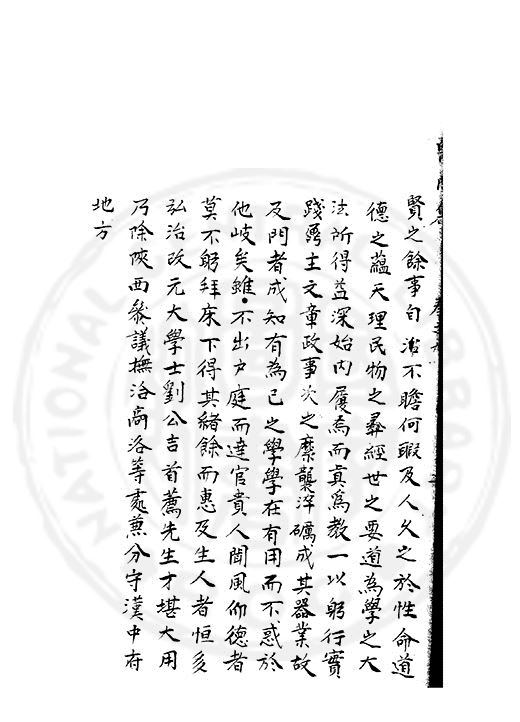 賢之餘事自治不贍何暇及人久之於性命道
德之蘊天理民物之彞經世之要道為學之大
法所得益深始內屨焉而真為教一以躬行實
踐爲主文章政事次之縻襲淬礪成其器業故
及門者咸知有為己之學學在有用而不惑於
他岐矣雖不出户庭而達官貴人聞風仰德者
莫不躬拜床下得其緒餘而惠及生人者恒多
弘治改元大學士劉公吉首薦先生才堪大用
乃除陝西叅議撫治商洛等處兼分守漢中府
地方